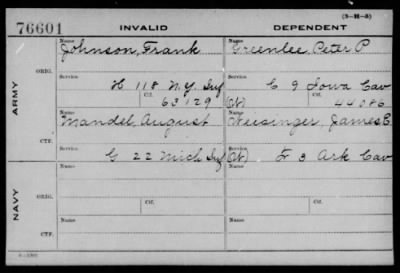 (3-M-5)
76601 INVALID DEPENDENT
Name Name
Johnson, Frank Greenlee, Peter P
ARMY
ORIG.
Service Service
H 118 N.Y. Inf C 9 Iowa Cav
Ctf. Ctf.
63129 (W) 44086
Name Name
Mandel, August Neisinger, James E
CTF.
Service Service
G 22 Mich Inf (W) F 3 Ark Cav
NAVY
Name Name
ORIG.
Ctf. Ctf.
Name Name
CTF.